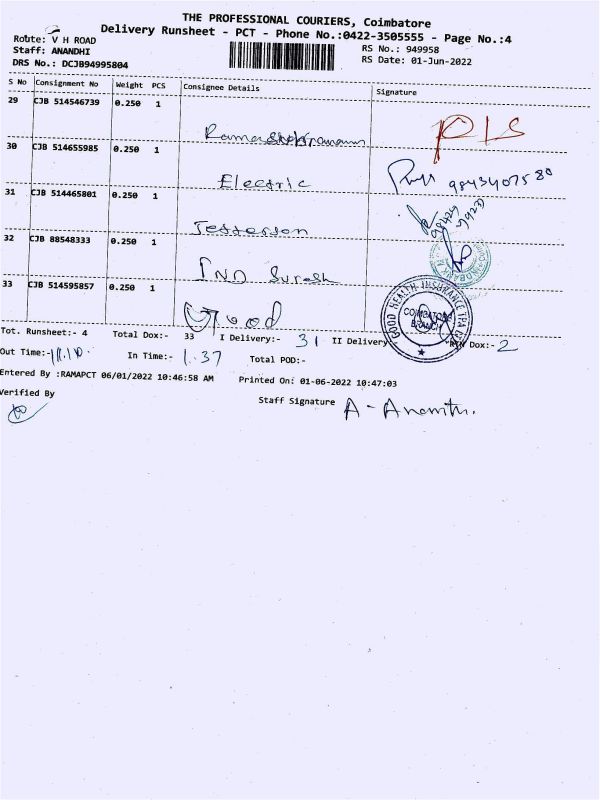 THE PROFESSIONAL COURIERS, Coimbatore
Delivery Runsheet - PCT - Phone No.:0422-3505555 - Page No.:4
Route: V H ROAD
RS No.: 949958
Staff: ANANDHI
RS Date: 01-Jun-2022
DRS No.: DCJB94995804
S No Consignment No Weight PCS Consignee Details Signature
29 CJB 514546739 0.250 1
30 CJB 514655985 0.250 1 Electric 9843407580
31 CJB 514465801 0.250 1 Jefferson
32 CJB 88548333 0.250 1 IND Suresh
33 CJB 514595857 0.250 1 Good
GOOD HEALTH INSURANCE TPA
COIMBATORE
BRANCH
Tot. Runsheet:- 4 Total Dox:- 33 I Delivery:- 31 II Delivery RTN Dox:- 2
Out Time:- 11.10 In Time:- 1.37 Total POD:-
Entered By :RAMAPCT 06/01/2022 10:46:58 AM Printed On: 01-06-2022 10:47:03
Verified By
Staff Signature